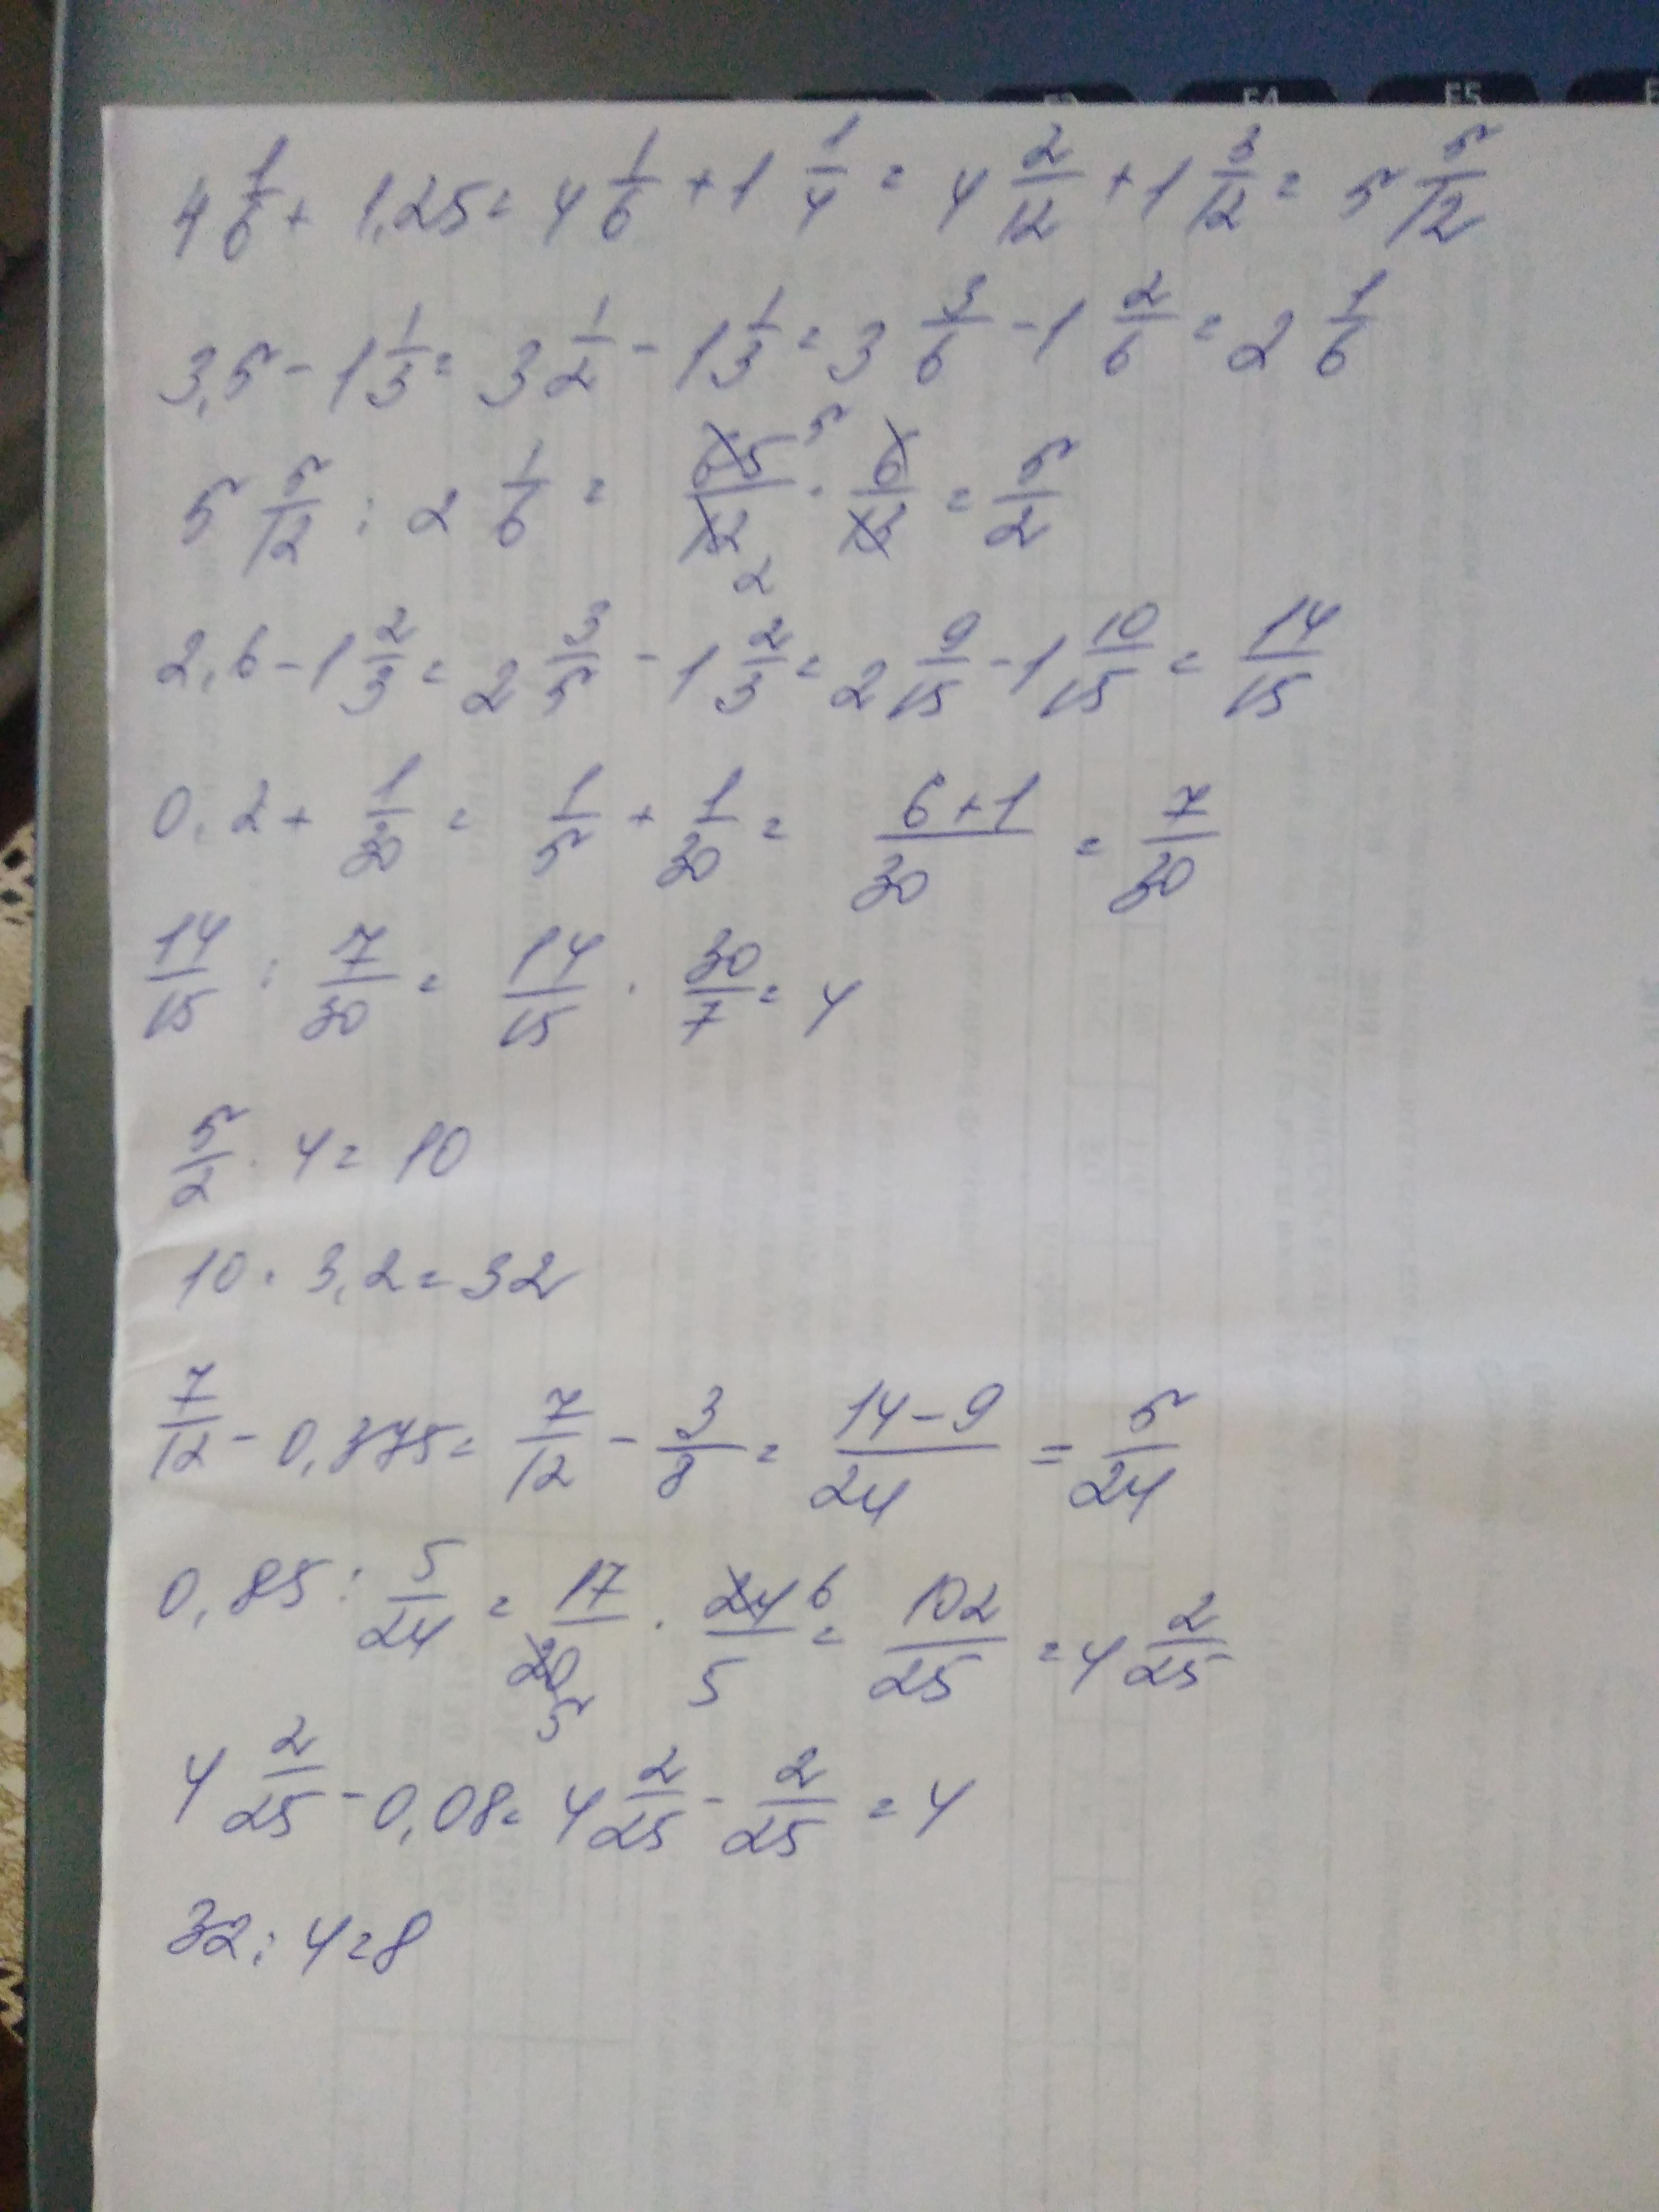 F3 F4 F5
4 1/6 + 1,25 = 4 1/6 + 1 1/4 = 4 2/12 + 1 3/12 = 5 5/12
3,5 - 1 1/3 = 3 1/2 - 1 1/3 = 3 3/6 - 1 2/6 = 2 1/6
5 5/12 : 2 1/6 = 65 5/12 2 · 6/13 = 5/2
2,6 - 1 2/3 = 2 3/5 - 1 2/3 = 2 9/15 - 1 10/15 = 14/15
0,2 + 1/30 = 1/5 + 1/30 = 6+1/30 = 7/30
14/15 : 7/30 = 14/15 · 30/7 = 4
5/2 · 4 = 10
10 · 3,2 = 32
7/12 - 0,375 = 7/12 - 3/8 = 14-9/24 = 5/24
0,85 : 5/24 = 17/20 5 · 24 6/5 = 102/25 = 4 2/25
4 2/25 - 0,08 = 4 2/25 - 2/25 = 4
32 : 4 = 8